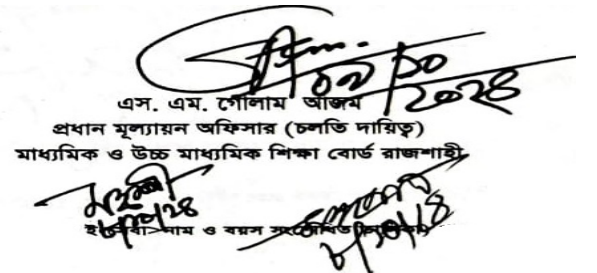 ০৯/১০/২০২৪
এস. এম. গোলাম আজম
প্রধান মূল্যায়ন অফিসার (চলতি দায়িত্ব)
মাধ্যমিক ও উচ্চ মাধ্যমিক শিক্ষা বোর্ড রাজশাহী
৮/১০/২৪
৮/১০/২৪
নাম ও বয়স